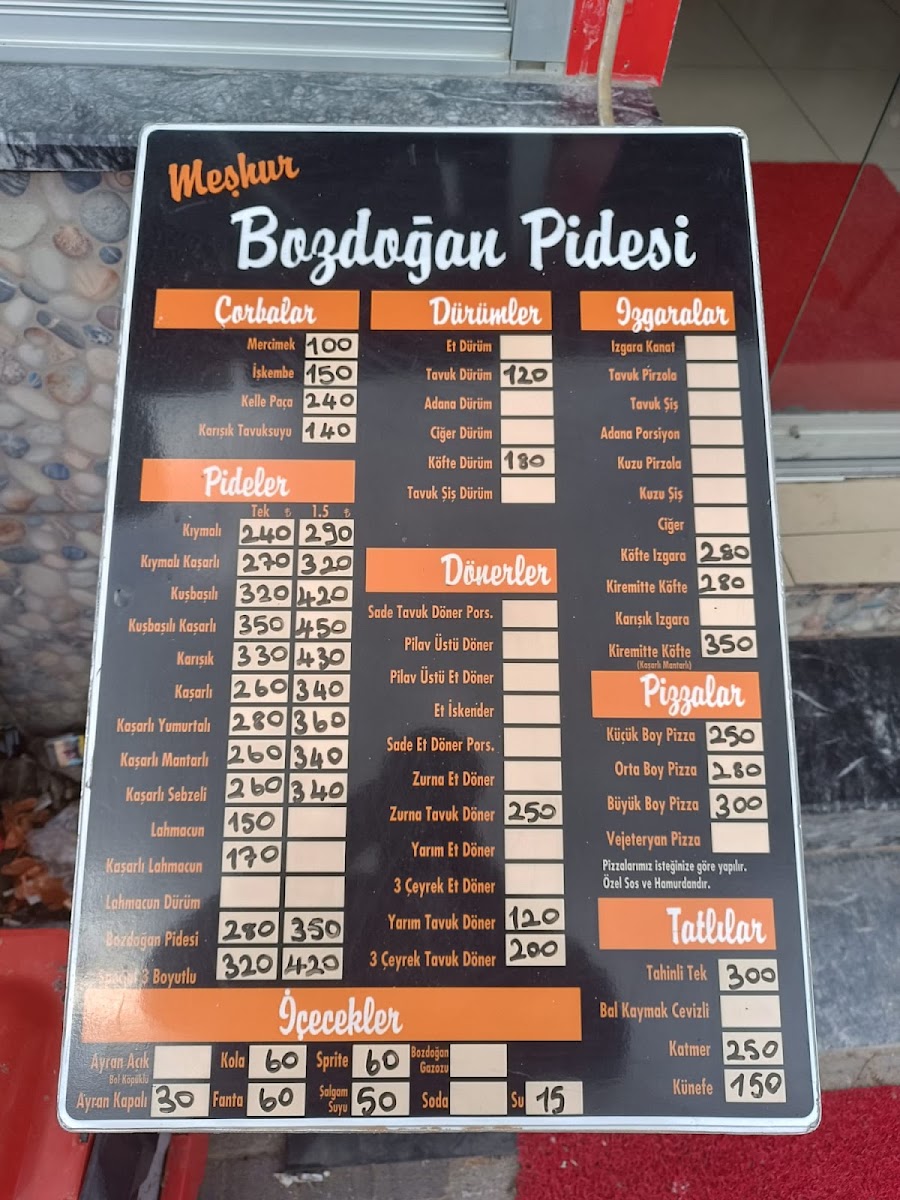 Meşhur
Bozdoğan Pidesi
Çorbalar
Mercimek 100
İşkembe 150
Kelle Paça 240
Karışık Tavuksuyu 140
Pideler
Tek ₺ 1.5 ₺
Kıymalı 240 290
Kıymalı Kaşarlı 270 320
Kuşbaşılı 320 420
Kuşbaşılı Kaşarlı 350 450
Karışık 330 430
Kaşarlı 260 340
Kaşarlı Yumurtalı 280 360
Kaşarlı Mantarlı 260 340
Kaşarlı Sebzeli 260 340
Lahmacun 150
Kaşarlı Lahmacun 170
Lahmacun Dürüm
Bozdoğan Pidesi 280 350
3 Boyutlu 320 420
Dürümler
Et Dürüm
Tavuk Dürüm 120
Adana Dürüm
Ciğer Dürüm
Köfte Dürüm 180
Tavuk Şiş Dürüm
Dönerler
Sade Tavuk Döner Pors.
Pilav Üstü Döner
Pilav Üstü Et Döner
Et İskender
Sade Et Döner Pors.
Zurna Et Döner
Zurna Tavuk Döner 250
Yarım Et Döner
3 Çeyrek Et Döner
Yarım Tavuk Döner 120
3 Çeyrek Tavuk Döner 200
Izgaralar
Izgara Kanat
Tavuk Pirzola
Tavuk Şiş
Adana Porsiyon
Kuzu Pirzola
Kuzu Şiş
Ciğer
Köfte Izgara 280
Kiremitte Köfte 280
Karışık Izgara
Kiremitte Köfte 350
(Kaşarlı Mantarlı)
Pizzalar
Küçük Boy Pizza 250
Orta Boy Pizza 280
Büyük Boy Pizza 300
Vejeteryan Pizza
Pizzalarımız isteğinize göre yapılır.
Özel Sos ve Hamurdandır.
Tatlılar
Tahinli Tek 300
Bal Kaymak Cevizli
Katmer 250
Künefe 150
İçecekler
Ayran Açık Kola 60 Sprite 60 Bozdoğan Gazozu
Bol Köpüklü
Ayran Kapalı 30 Fanta 60 Şalgam Suyu 50 Soda Su 15